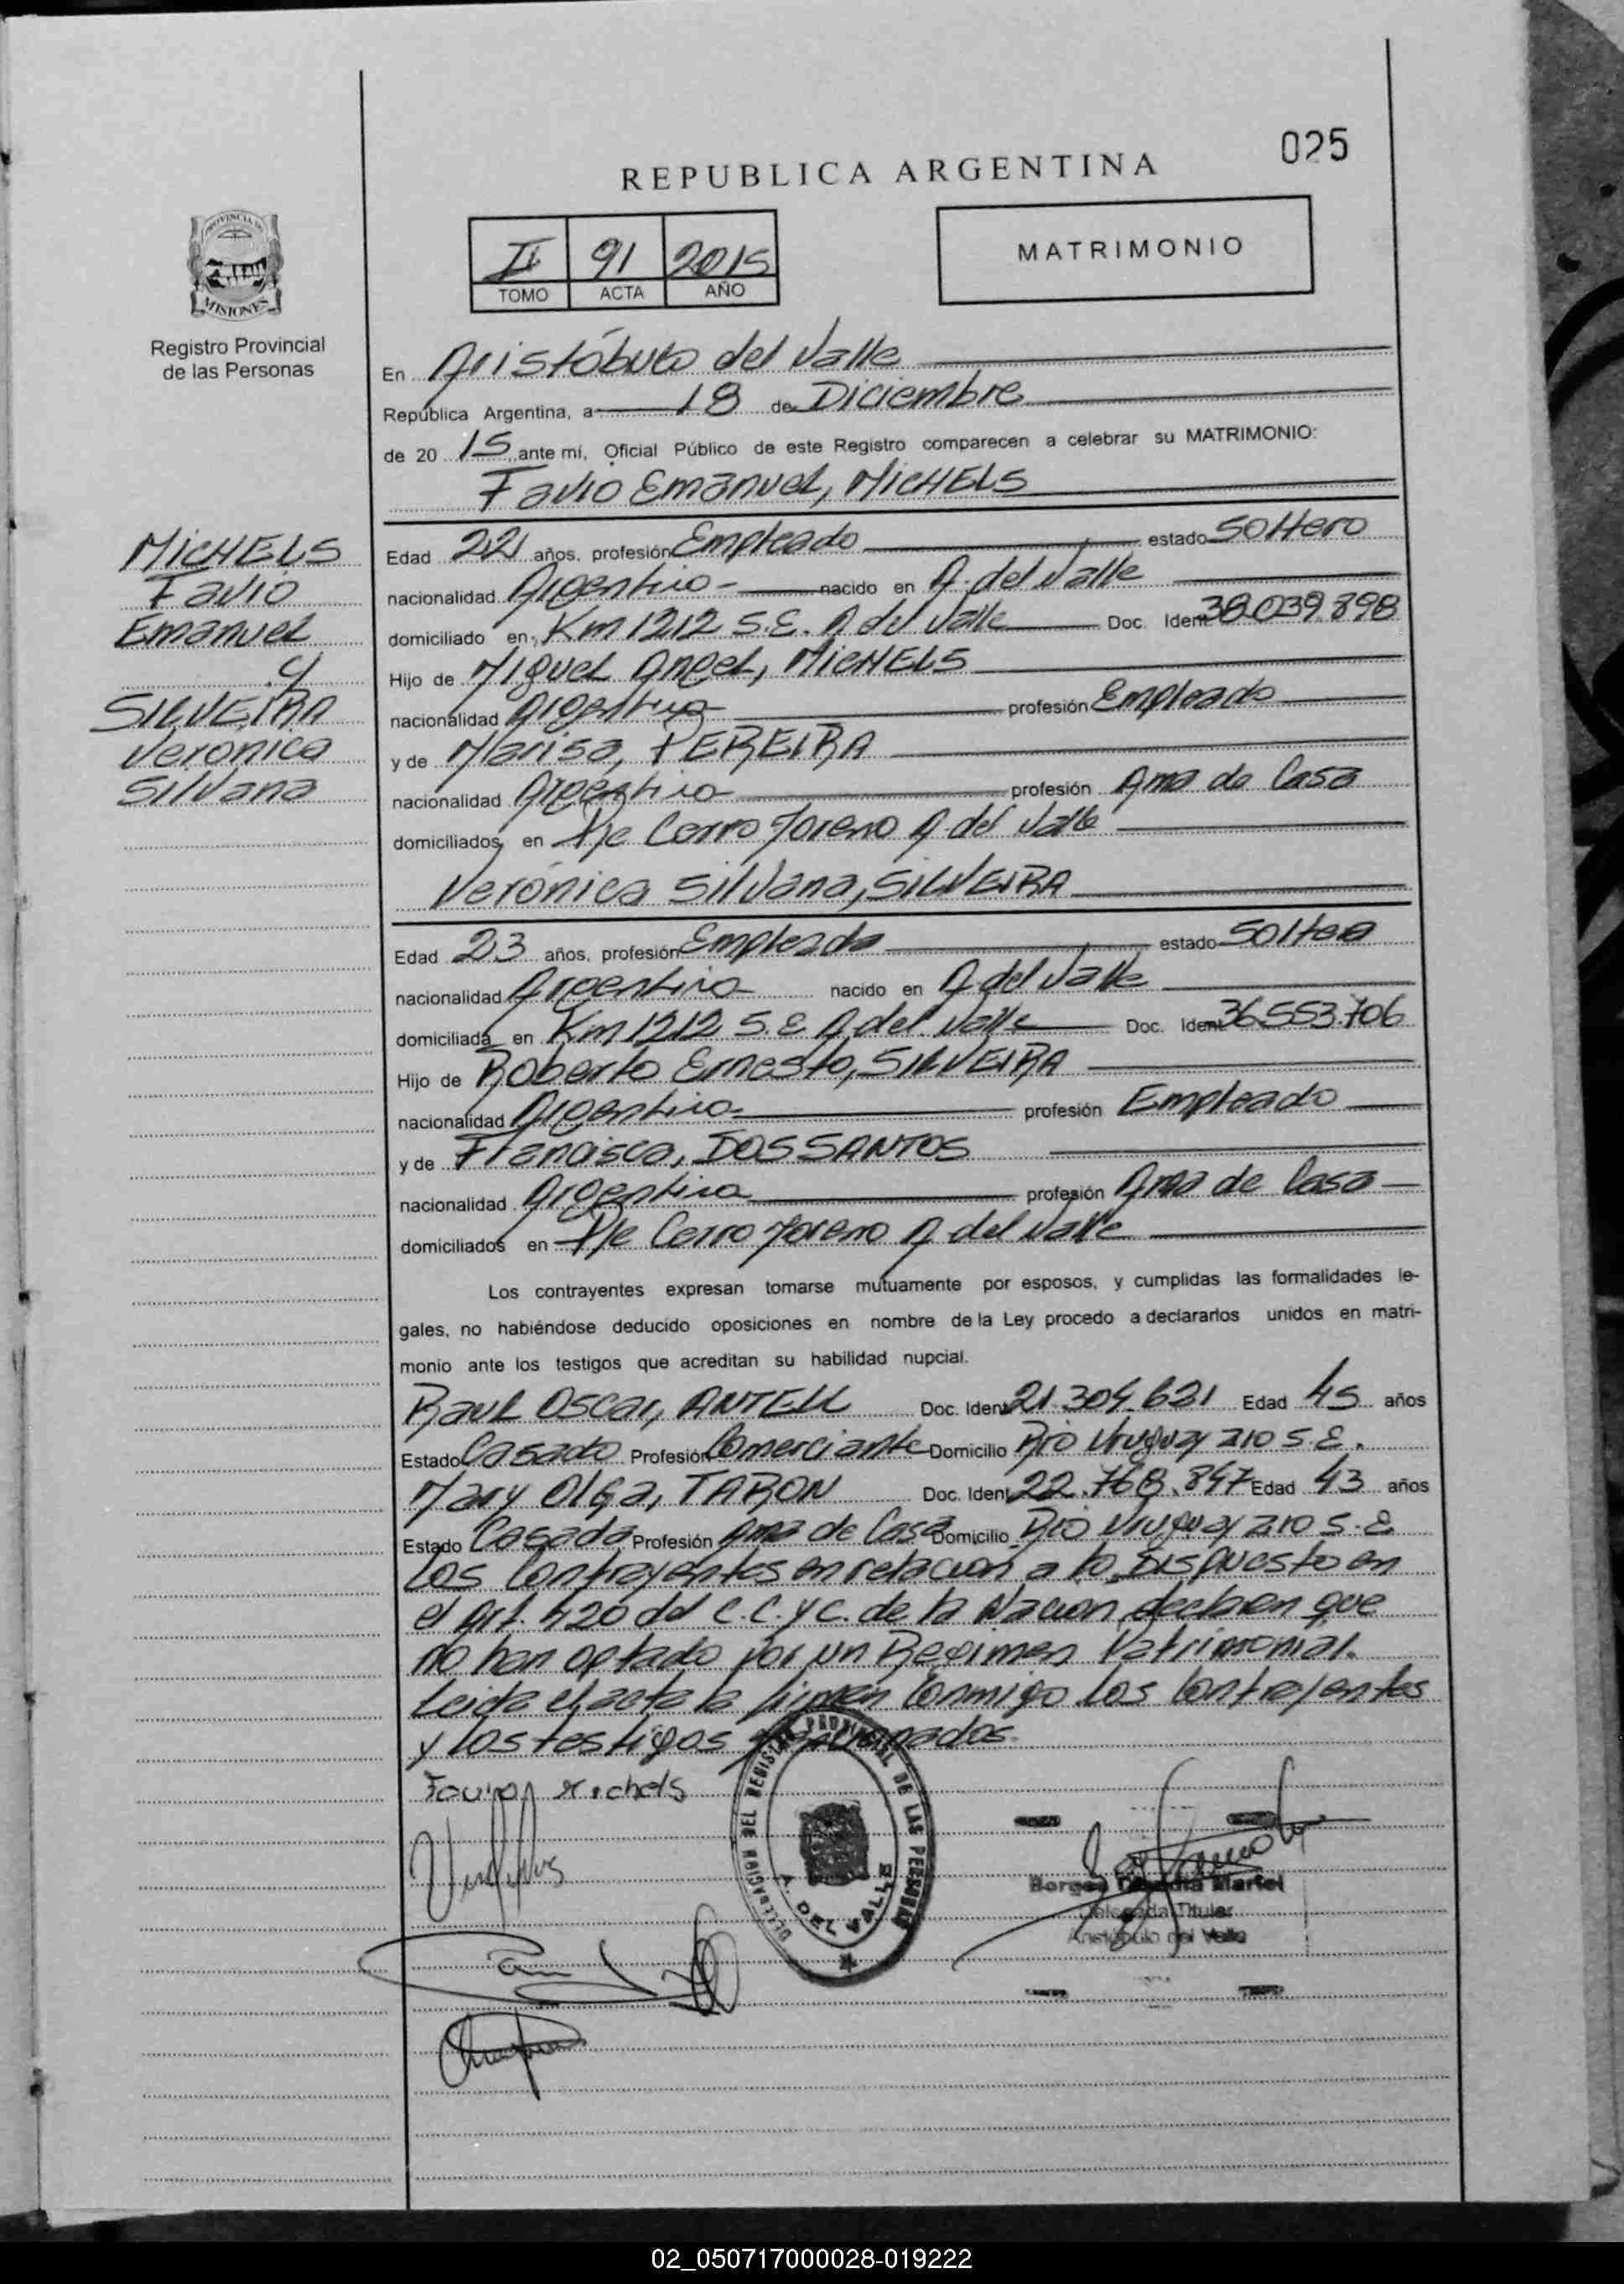 025
REPUBLICA ARGENTINA
PROVINCIA DE
MISIONES
Registro Provincial
de las Personas
II 91 2015
TOMO ACTA AÑO
MATRIMONIO
En Aristóbulo del Valle
República Argentina, a 18 de Diciembre
de 20 15 ante mí, Oficial Público de este Registro comparecen a celebrar su MATRIMONIO:
Favio Emanuel, MICHELS
MICHELS
Favio
Emanuel
y
SILVEIRA
Veronica
Silvana
Edad 22 años, profesión Empleado estado Soltero
nacionalidad Argentino nacido en A. del Valle
domiciliado en Km 1212 S.E. A del Valle Doc. Ident 38.039.898
Hijo de Miguel Angel, MICHELS
nacionalidad Argentina profesión Empleado
y de Marisa, PEREIRA
nacionalidad Argentina profesión Ama de Casa
domiciliados en Pje Cerro Moreno A. del Valle
Verónica Silvana, SILVEIRA
Edad 23 años, profesión Empleada estado Soltera
nacionalidad Argentina nacido en A del Valle
domiciliada en Km 1212 S.E A del Valle Doc. Ident 36.553.706
Hijo de Roberto Ernesto, SILVEIRA
nacionalidad Argentina profesión Empleado
y de Francisca, DOS SANTOS
nacionalidad Argentina profesión Ama de Casa
domiciliados en Pje Cerro Moreno A del Valle
Los contrayentes expresan tomarse mutuamente por esposos, y cumplidas las formalidades le-
gales, no habiéndose deducido oposiciones en nombre de la Ley procedo a declararlos unidos en matri-
monio ante los testigos que acreditan su habilidad nupcial.
Raul Oscar, ANTELL Doc. Ident 21.304.621 Edad 45 años
Estado Casado Profesión Comerciante Domicilio Rio Uruguay 210 S.E.
Mary Olga, TARON Doc. Ident 22.768.847 Edad 43 años
Estado Casada Profesión Ama de Casa Domicilio Rio Uruguay 210 S.E
Los Contrayentes en relacion a lo Dispuesto en
el Art. 420 del C.C. y C. de la Nacion declaran que
no han optado por un Regimen Patrimonial.
Leida el acta la firman Conmigo los Contrayentes
y los testigos
DELEGACION DEL REGISTRO PROVINCIAL DE LAS PERSONAS
A. DEL VALLE
Michels
Borges Claudia Mariel
Delegada Titular
Aristóbulo del Valle
02_050717000028-019222